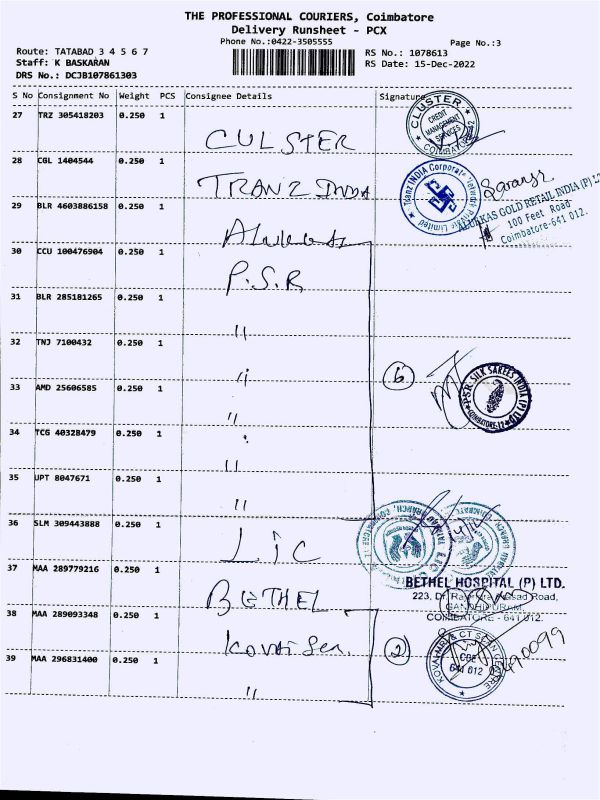 THE PROFESSIONAL COURIERS, Coimbatore
Delivery Runsheet - PCX
Phone No.:0422-3505555
Page No.:3
Route: TATABAD 3 4 5 6 7
Staff: K BASKARAN
DRS No.: DCJB107861303
RS No.: 1078613
RS Date: 15-Dec-2022
S No Consignment No Weight PCS Consignee Details Signature
27 TRZ 305418203 0.250 1
CULSTER
CLUSTER
CREDIT
MANAGEMENT
SERVICES
COIMBATORE
28 CGL 1404544 0.250 1
TRANZ INDIA
Tranz INDIA Corporate Network Private Limited
Saranya
29 BLR 4603886158 0.250 1
ALUKKAS GOLD RETAIL INDIA (P)
100 Feet Road
Coimbatore-641 012.
30 CCU 100476904 0.250 1
P.S.R
31 BLR 285181265 0.250 1
"
32 TNJ 7100432 0.250 1
"
6
P.S.R. SILK SAREES INDIA (P) LTD
COIMBATORE-12
33 AMD 25606585 0.250 1
"
34 TCG 40328479 0.250 1
"
35 UPT 8047671 0.250 1
"
36 SLM 309443888 0.250 1
LIC
37 MAA 289779216 0.250 1
BETHEL
BETHEL HOSPITAL (P) LTD.
223, Dr. Road,
GANDHIPURAM,
COIMBATORE - 641 012.
38 MAA 289093348 0.250 1
Kovai Scan
2
KOVAI MRI & CT SCAN CENTRE
COE
641 012
39 MAA 296831400 0.250 1
"